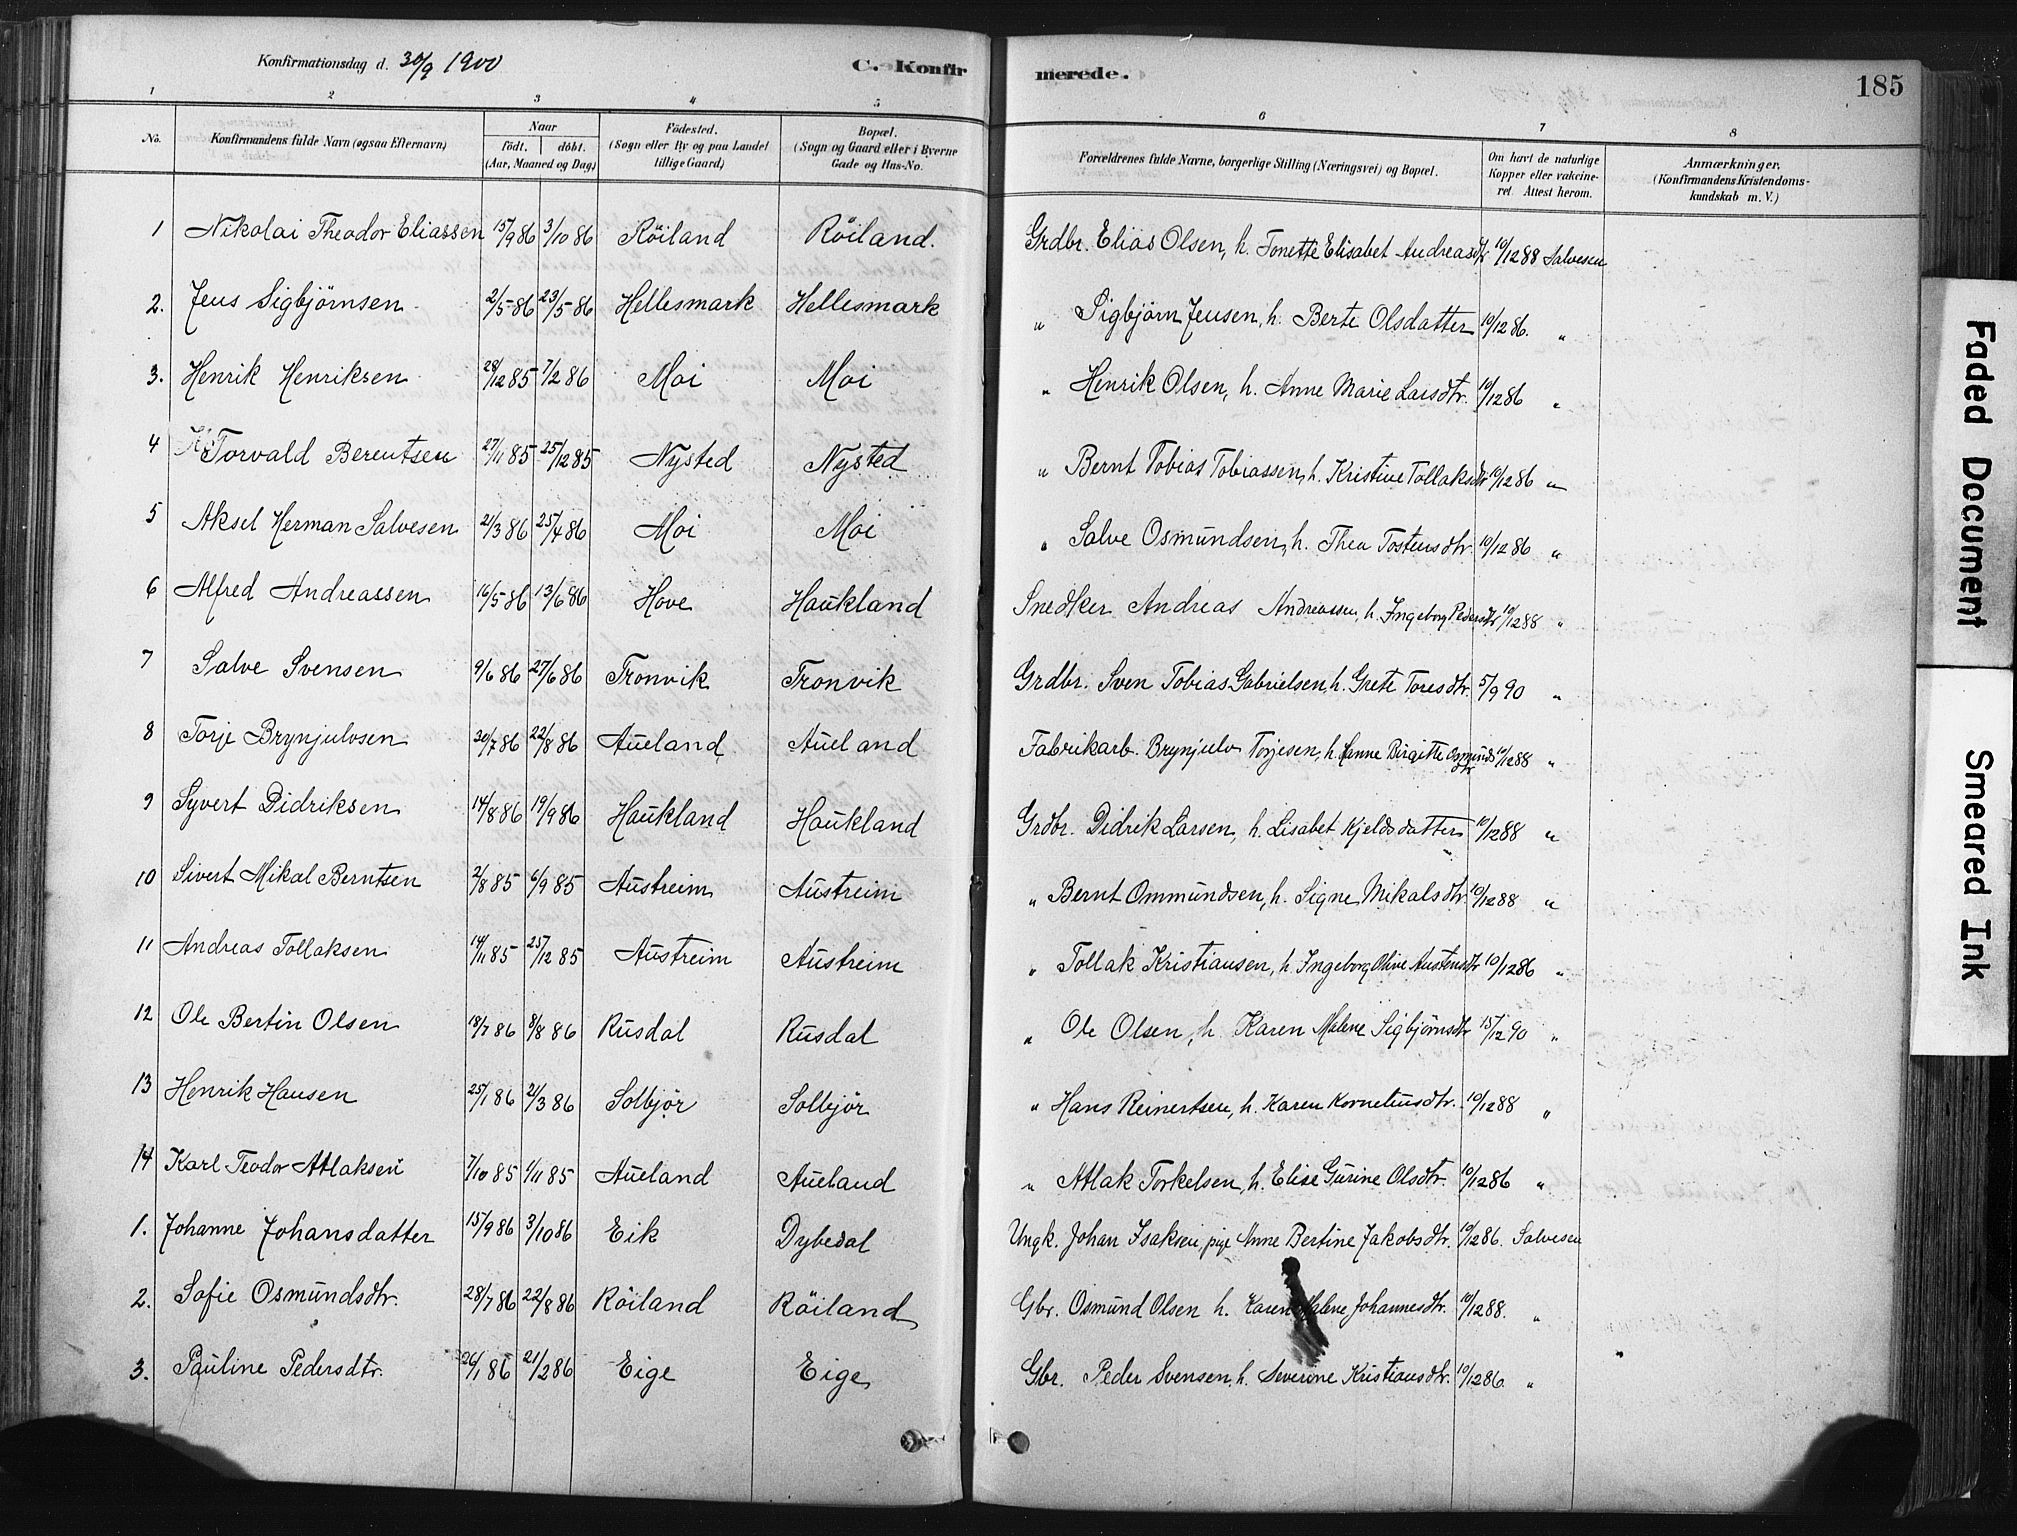 Konfirmationsdag d. 30/9 1900
C. Konfirmerede.
185
1 2 3 4 5 6 7 8
No. | Konfirmandens fulde Navn (ogsaa Efternavn) | Naar født. døbt. (Aar, Maaned og Dag) | Fødested. (Sogn eller By og paa Landet tillige Gaard) | Bopæl. (Sogn og Gaard eller i Byerne Gade og Hus-No. | Forældrenes fulde Navne, borgerlige Stilling (Næringsvei) og Bopæl. | Om havt de naturlige Kopper eller vakcineret. Attest herom. | Anmærkninger. (Konfirmandens Kristendomskundskab m. V.)
1 Nikolai Theodor Eliassen 15/9 86 3/10 86 Röiland Röiland. Grdbr. Elias Olsen, h. Tonette Elisabet Andreasdtr 10/12 88 Salvesen
2. Jens Sigbjørnsen 2/5 86 23/5 86 Hellesmark Hellesmark " Sigbjørn Jensen, h. Berte Olsdatter 10/12 86. "
3. Henrik Henriksen 28/12 85 7/2 86 Moi Moi " Henrik Olsen, h. Anne Marie Larsdtr. 10/12 86 "
4 Torvald Berentsen 27/11 85 25/12 85 Nysted Nysted " Bernt Tobias Tobiassen, h. Kristine Tollaksdtr 10/12 86 "
5 Aksel Herman Salvesen 21/3 86 25/4 86 Moi Moi " Salve Osmundsen, h. Thea Tostensdtr. 10/12 86 "
6 Alfred Andreassen 16/5 86 13/6 86 Hove Haukland Snedker Andreas Andreassen, h. Ingeborg Pedersdtr 10/12 88 "
7 Salve Svensen 9/6 86 27/6 86 Tronvik Tronvik Grdbr. Sven Tobias Gabrielsen, h. Grete Toresdtr. 5/9 90 "
8 Torje Brynjulvsen 30/7 86 22/8 86 Aueland Aueland Fabrikarb. Brynjulv Torjesen, h. Hanne Birgitte Osmundsdtr 10/12 88 "
9 Syvert Didriksen 14/8 86 19/9 86 Haukland Haukland Grdbr. Didrik Larsen, h. Lisabet Kjeldsdatter 10/12 88 "
10 Sivert Mikal Berntsen 2/8 85 6/9 85 Austreim Austreim " Bernt Ommundsen, h. Signe Mikalsdtr. 10/12 88 "
11 Andreas Tollaksen 14/11 85 25/12 85 Austreim Austreim " Tollak Kristiansen, h. Ingeborg Oline Austensdtr 10/12 86 "
12 Ole Bertin Olsen 18/7 86 8/8 86 Rusdal Rusdal " Ole Olsen, h. Karen Malene Sigbjørnsdtr 15/12 90 "
13 Henrik Hansen 25/1 86 21/3 86 Solbjør Solbjør " Hans Reinertsen, h. Karen Korneliusdtr. 10/12 88 "
14 Karl Teodor Atlaksen 7/10 85 1/11 85 Aueland Aueland " Atlak Torkelsen, h. Elise Gurine Olsdtr. 10/12 86 "
1. Johanne Johansdatter 15/9 86 3/10 86 Eik Dybedal Ungk. Johan Isaksen, pige Anne Bertine Jakobsdtr. 10/12 86. Salvesen
2. Sofie Osmundsdtr. 28/7 86 22/8 86 Röiland Röiland Gbr. Osmund Olsen h. Karen Malene Johannesdtr. 10/12 88. "
3. Pauline Pedersdtr. 26/1 86 21/2 86 Eige Eige Gbr. Peder Svensen, h. Severine Kristiansdtr. 10/12 86. "
Faded Document
Smeared Ink